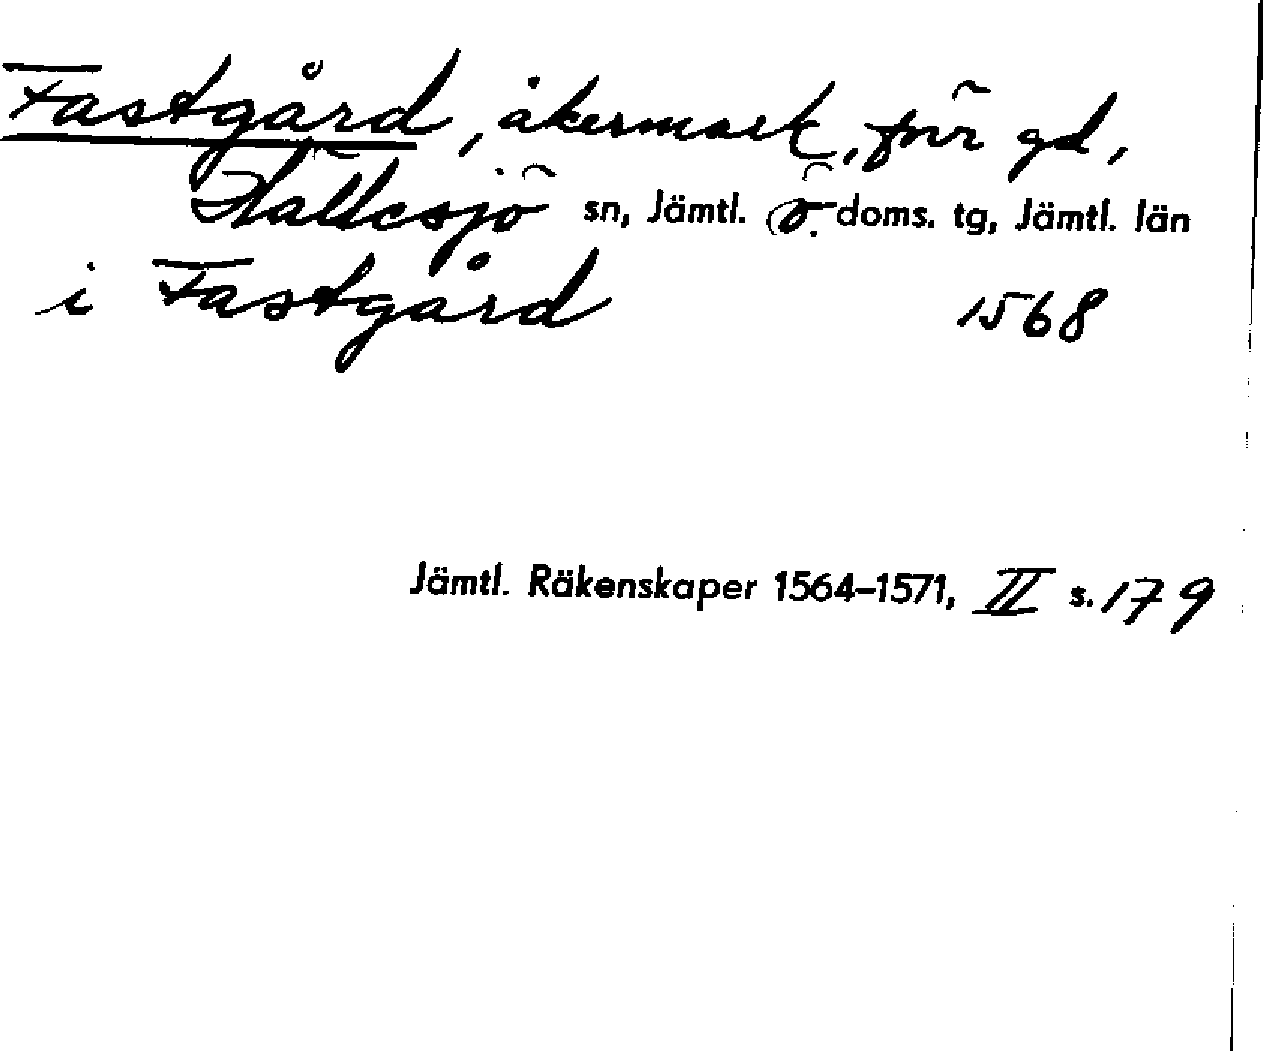 Fastgård, åkermark, förr gd,
Hällesjö sn, Jämtl. ö. doms. tg, Jämtl. län
i Fastgård 1568
Jämtl. Räkenskaper 1564–1571, II s. 179